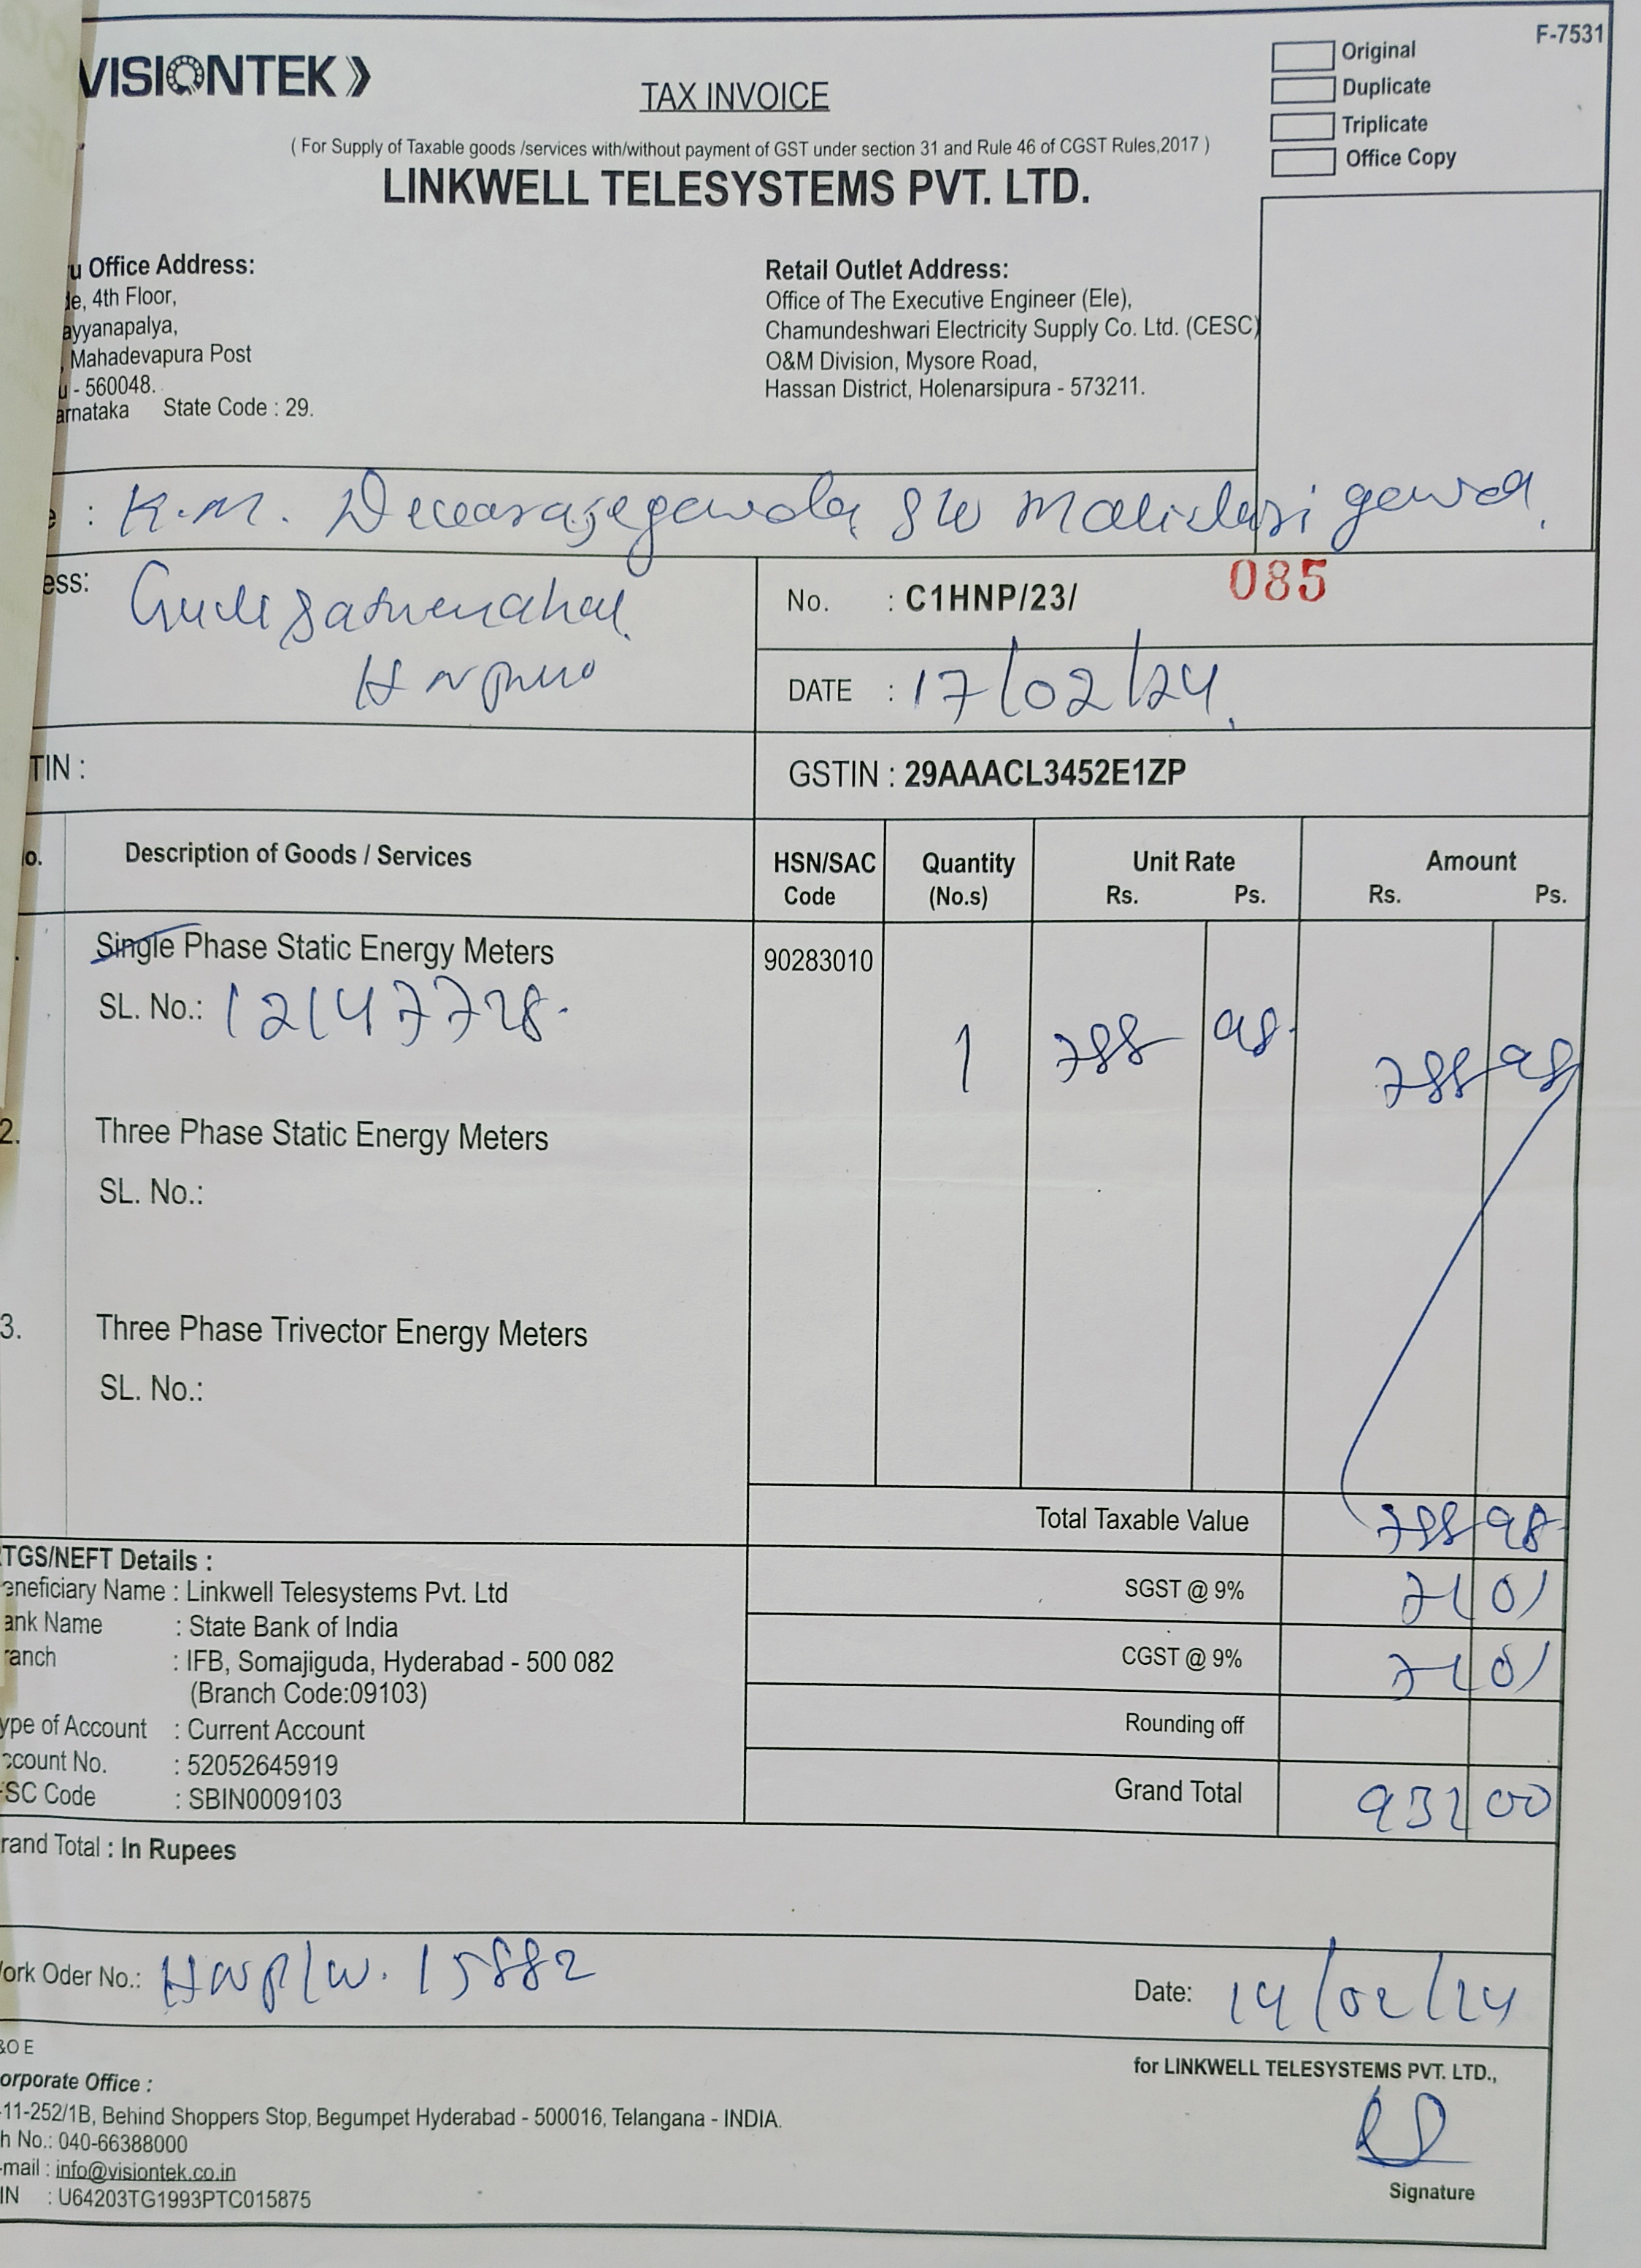 F-7531
VISIONTEK
Original
Duplicate
Triplicate
Office Copy
TAX INVOICE
( For Supply of Taxable goods /services with/without payment of GST under section 31 and Rule 46 of CGST Rules,2017 )
LINKWELL TELESYSTEMS PVT. LTD.
u Office Address:
de, 4th Floor,
ayyanapalya,
, Mahadevapura Post
u - 560048.
arnataka State Code : 29.
Retail Outlet Address:
Office of The Executive Engineer (Ele),
Chamundeshwari Electricity Supply Co. Ltd. (CESC)
O&M Division, Mysore Road,
Hassan District, Holenarsipura - 573211.
e : K.M.
ess:
No. : C1HNP/23/ 085
DATE : 17/02/24
TIN :
GSTIN : 29AAACL3452E1ZP
o. Description of Goods / Services HSN/SAC Code Quantity (No.s) Unit Rate Rs. Ps. Amount Rs. Ps.
. Single Phase Static Energy Meters 90283010
SL. No.: 12147728. 1 788 98 788 98
2. Three Phase Static Energy Meters
SL. No.:
3. Three Phase Trivector Energy Meters
SL. No.:
Total Taxable Value 788 98
SGST @ 9% 71 01
CGST @ 9% 71 01
Rounding off
Grand Total 931 00
TGS/NEFT Details :
eneficiary Name : Linkwell Telesystems Pvt. Ltd
ank Name : State Bank of India
ranch : IFB, Somajiguda, Hyderabad - 500 082
(Branch Code:09103)
ype of Account : Current Account
ccount No. : 52052645919
SC Code : SBIN0009103
rand Total : In Rupees
ork Oder No.: HNP/W. 15882 Date: 14/02/24
&O E
for LINKWELL TELESYSTEMS PVT. LTD.,
orporate Office :
-11-252/1B, Behind Shoppers Stop, Begumpet Hyderabad - 500016, Telangana - INDIA.
h No.: 040-66388000
-mail : info@visiontek.co.in
IN : U64203TG1993PTC015875
Signature